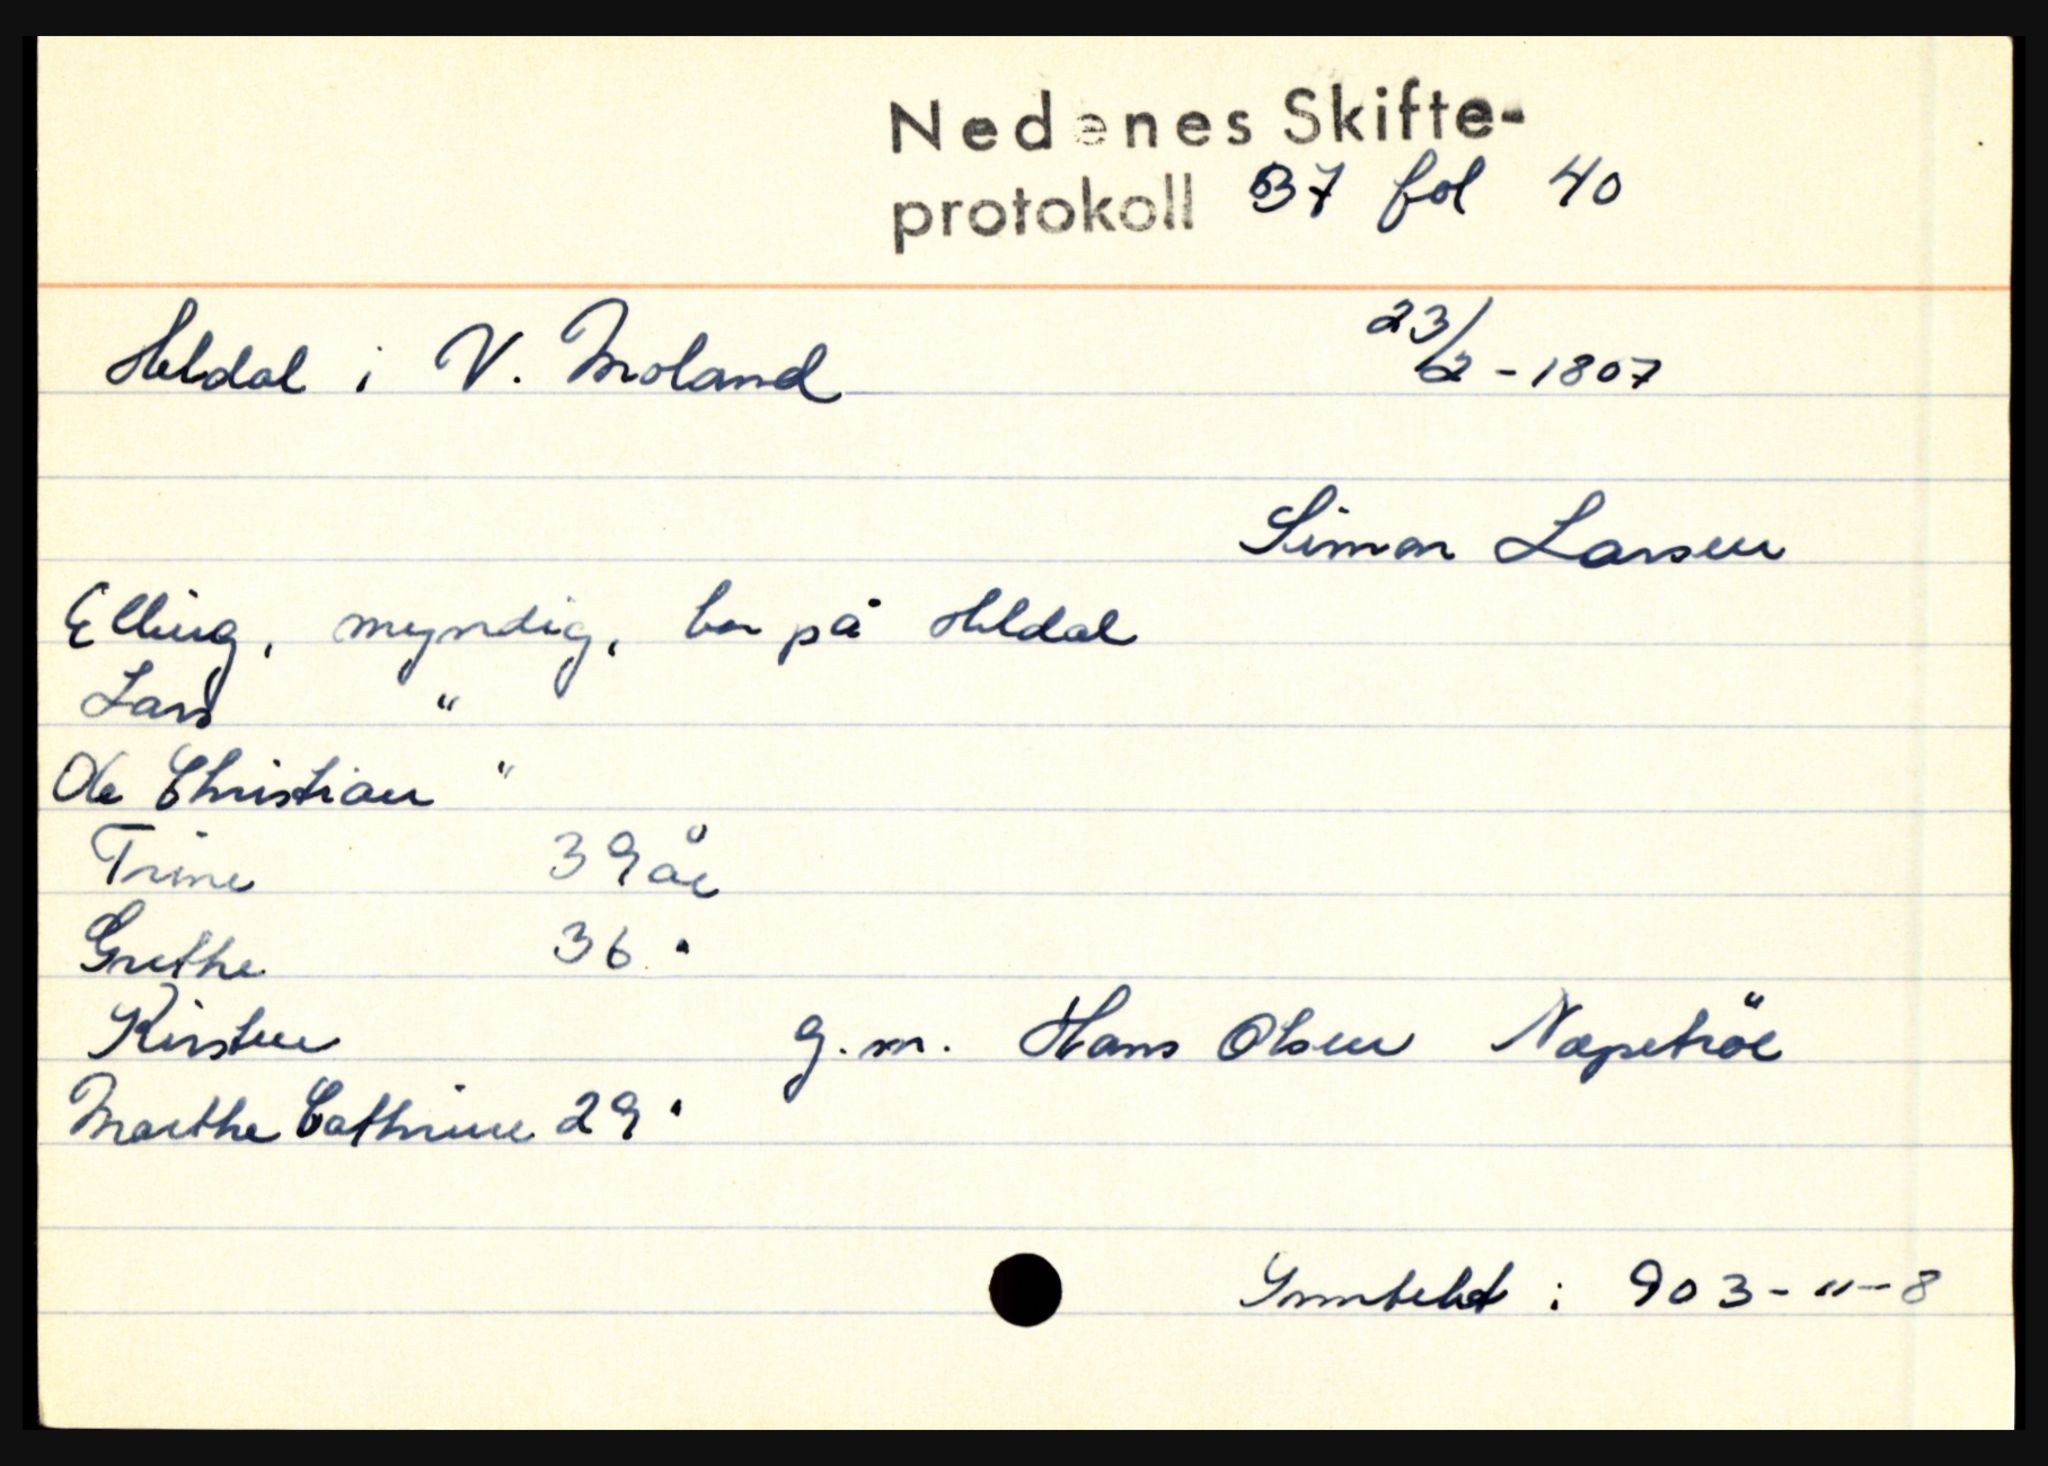 Nedenes Skifte-
protokoll B7 fol 40
Heldal i V. Moland 23/2 - 1807
Simon Larsen
Elling, myndig, bor på Heldal
Lars "
Ole Christian "
Trine 39 år
Grethe 36 "
Kirsten g.m. Hans Olsen Næpetröe
Marthe Cathrine 29 "
903 - " - 8